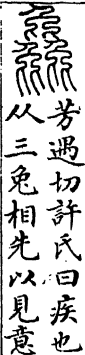 芳遇切許氏曰疾也
从三兔相先以見意